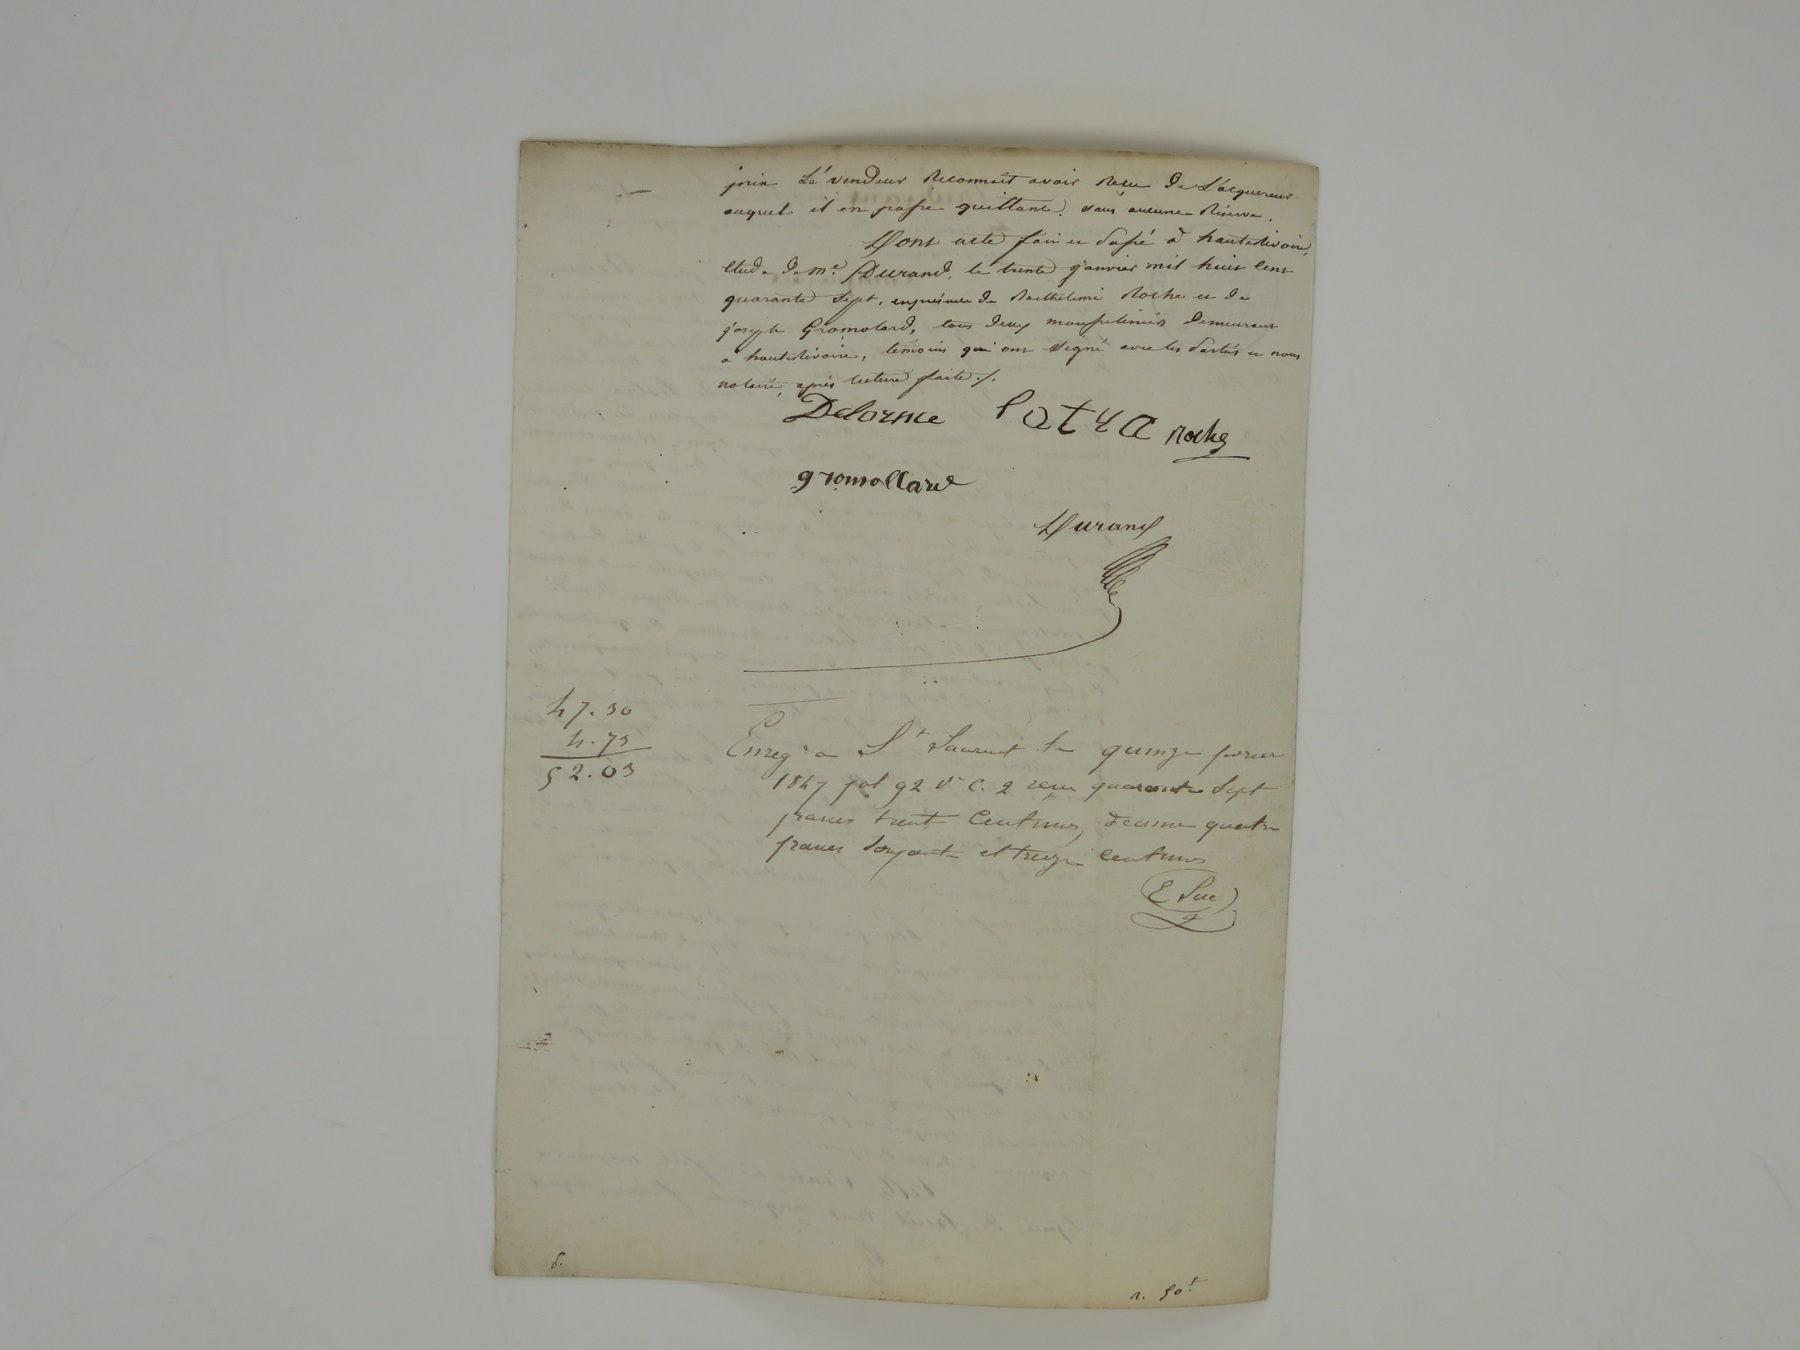 prix Le vendeur Reconnaît avoir Reçu De L'acquereur
auquel il en passe quittance, sans aucune Réserve.
Dont acte fait et Passé à hauterivoire,
Etude De Me Durand, le trente janvier mil huit cent
quarante Sept, en présence De Barthelemi Roche et De
joseph Gromolard, tous Deux Demeurant
à hauterivoire, témoins qui ont Signé avec les Parties et nous
notaire, après lecture faite ./.
Delorme Patra Roche
gromollard
Durand
47.30
4.73
52.03
Enreg à St Laurent le quinze fevrier
1847 fol 92 Vo C. 2 reçu quarante Sept
francs trente Centimes, décime quatre
francs soixante et treize centimes
E Suc